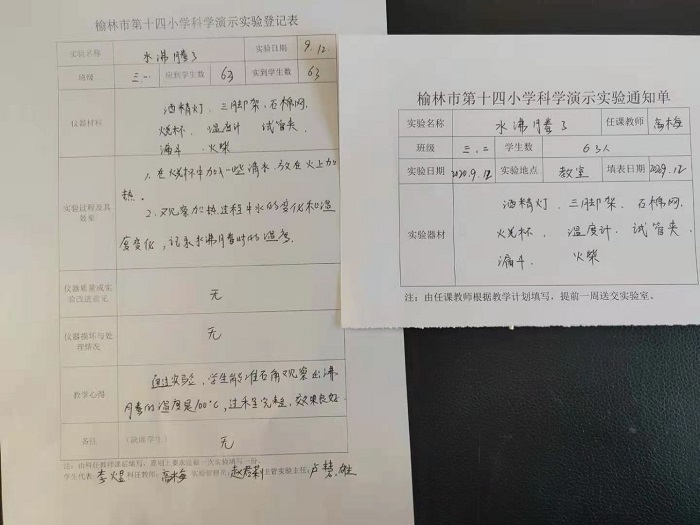 榆林市第十四小学科学演示实验登记表
实验名称 水沸腾了 实验日期 9.12
班级 三.一 应到学生数 63 实到学生数 63
仪器材料 酒精灯、三脚架、石棉网、
烧杯、温度计 试管夹
漏斗、火柴
实验过程及其效果
1.在烧杯中加入一些清水,放在火上加
热。
2.观察加热过程中水的变化和温
度变化,记录水沸腾时的温度。
仪器质量或实验改进意见 无
仪器损坏与处理情况 无
教学心得 通过实验,学生能准确观察出沸
腾的温度是100℃,过程完整,效果良好.
备注 (缺席学生) 无
注:由科任教师课后填写,
学生代表:李煜 科任教师:高梅 实验管理员:赵君莉 主管实验主任:卢慧雄
榆林市第十四小学科学演示实验通知单
实验名称 水沸腾了 任课教师 高梅
班级 三.二 学生数 63人
实验日期 2020.9.12 实验地点 教室 填表日期
实验器材 酒精灯、三脚架、石棉网
火烧杯、温度计、试管夹、
漏斗、火柴
注:由任课教师根据教学计划填写,提前一周送交实验室。